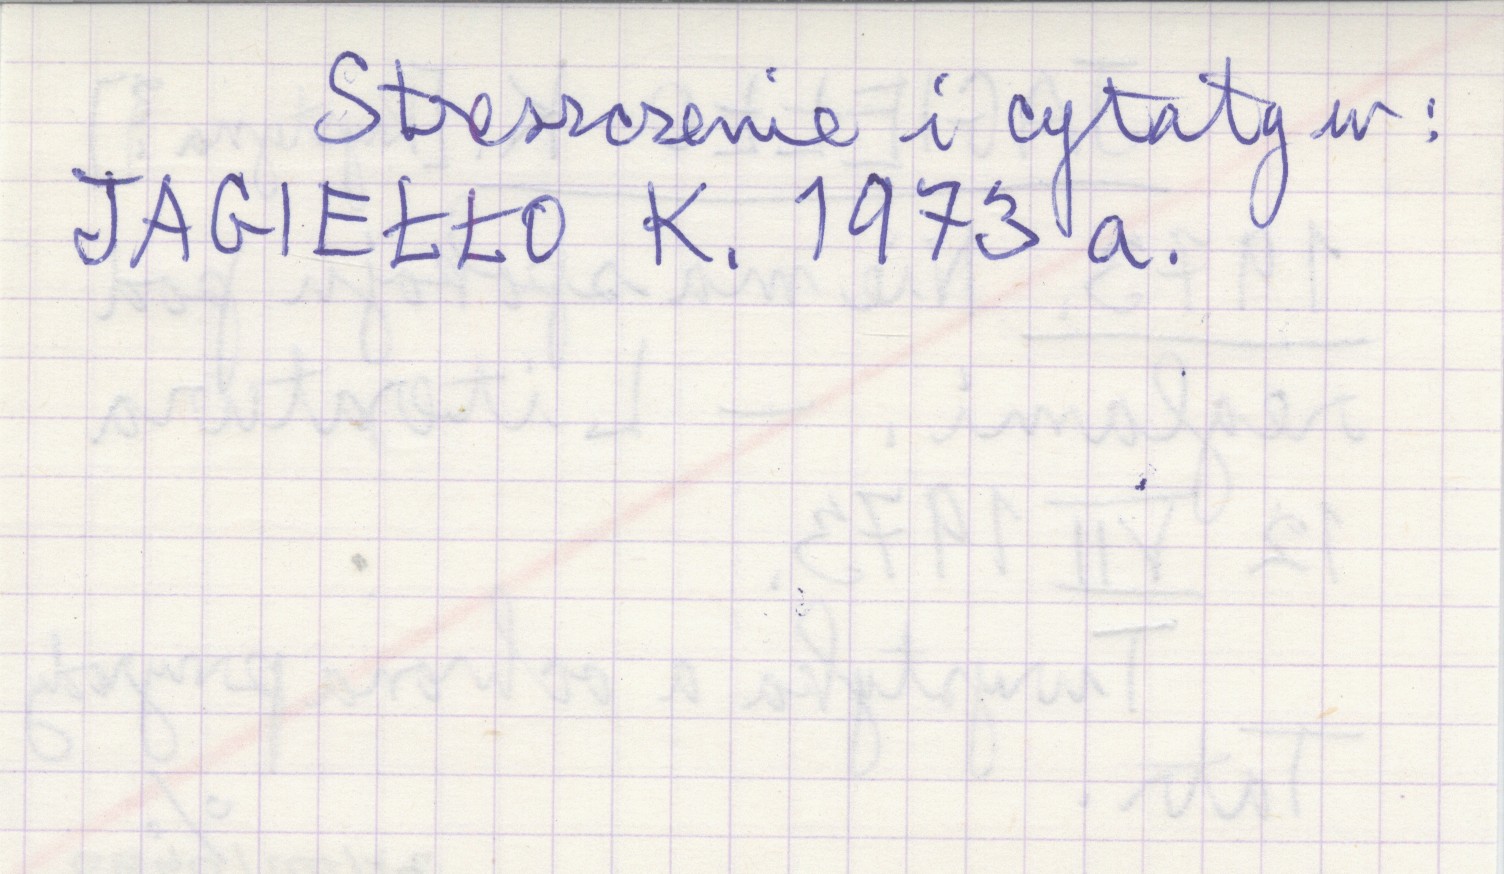 Streszczenie i cytaty w:
JAGIEŁŁO K. 1973 a.